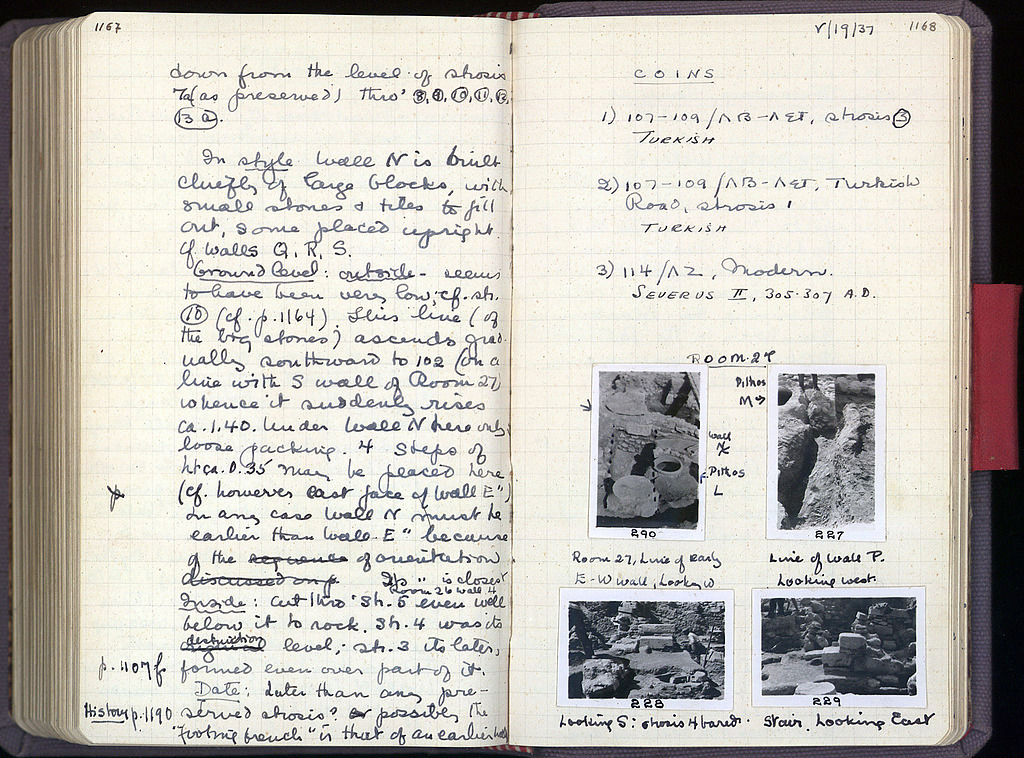 1167
down from the level of strosis
7a (as preserved) thro' 8, 9, 10, 11, 12,
13 a.
In style Wall N is built
chiefly of large blocks, with
small stones & tiles to fill
out, some placed upright.
Cf. walls Q, R, S.
Ground level: outside - seems
to have been very low, cf. str.
10 (cf. p. 1164). This line (of
the big stones) ascends grad-
ually southward to 102 (on a
line with S wall of Room 27)
whence it suddenly rises
ca. 1.40. Under Wall N here only
loose packing. 4 Steps of
ht. ca. 0.35 may be placed here
(cf. however east face of Wall E")
In any case Wall N must be
earlier than Wall E" because
of the sequence of orientation
discussed on p. " is closest
Room 26 wall 4
Inside: cut thro' str. 5 even well
below it to rock. Str. 4 was its
destruction
level; str. 3 its later,
p. 1107 f
formed even over part of it.
Date: later than any pre-
History p. 1190
served strosis? or possibly the
"footing trench" is that of an earlier wall
V/19/37
1168
COINS
1) 107-109/ΛB-ΛΣΤ, strosis 3
TURKISH
2) 107-109/ΛB-ΛΣΤ, Turkish
Road, strosis 1
TURKISH
3) 114/ΛΖ, Modern.
SEVERUS II, 305-307 A.D.
ROOM 27
Pithos
M →
Wall
Pithos
L
290
227
Room 27, Line of early
E-W wall, Looking W
Line of Wall P.
Looking west.
228
229
Looking S: strosis 4 bared.
Stair, Looking East